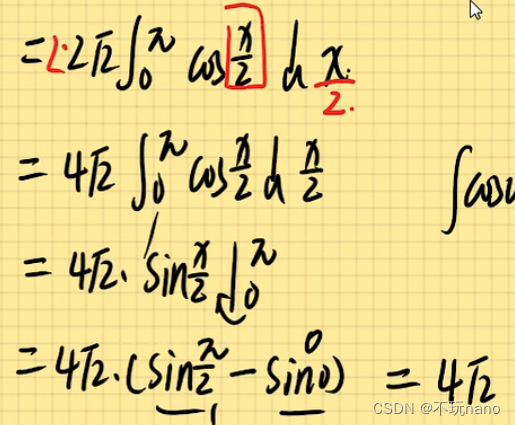 =2·2√2∫₀^π cos x/2 d x/2
= 4√2 ∫₀^π cos x/2 d x/2
∫cosu
= 4√2· sin x/2 |₀^π
= 4√2·(sin π/2 - sin0) = 4√2
1
0
CSDN @不玩nano